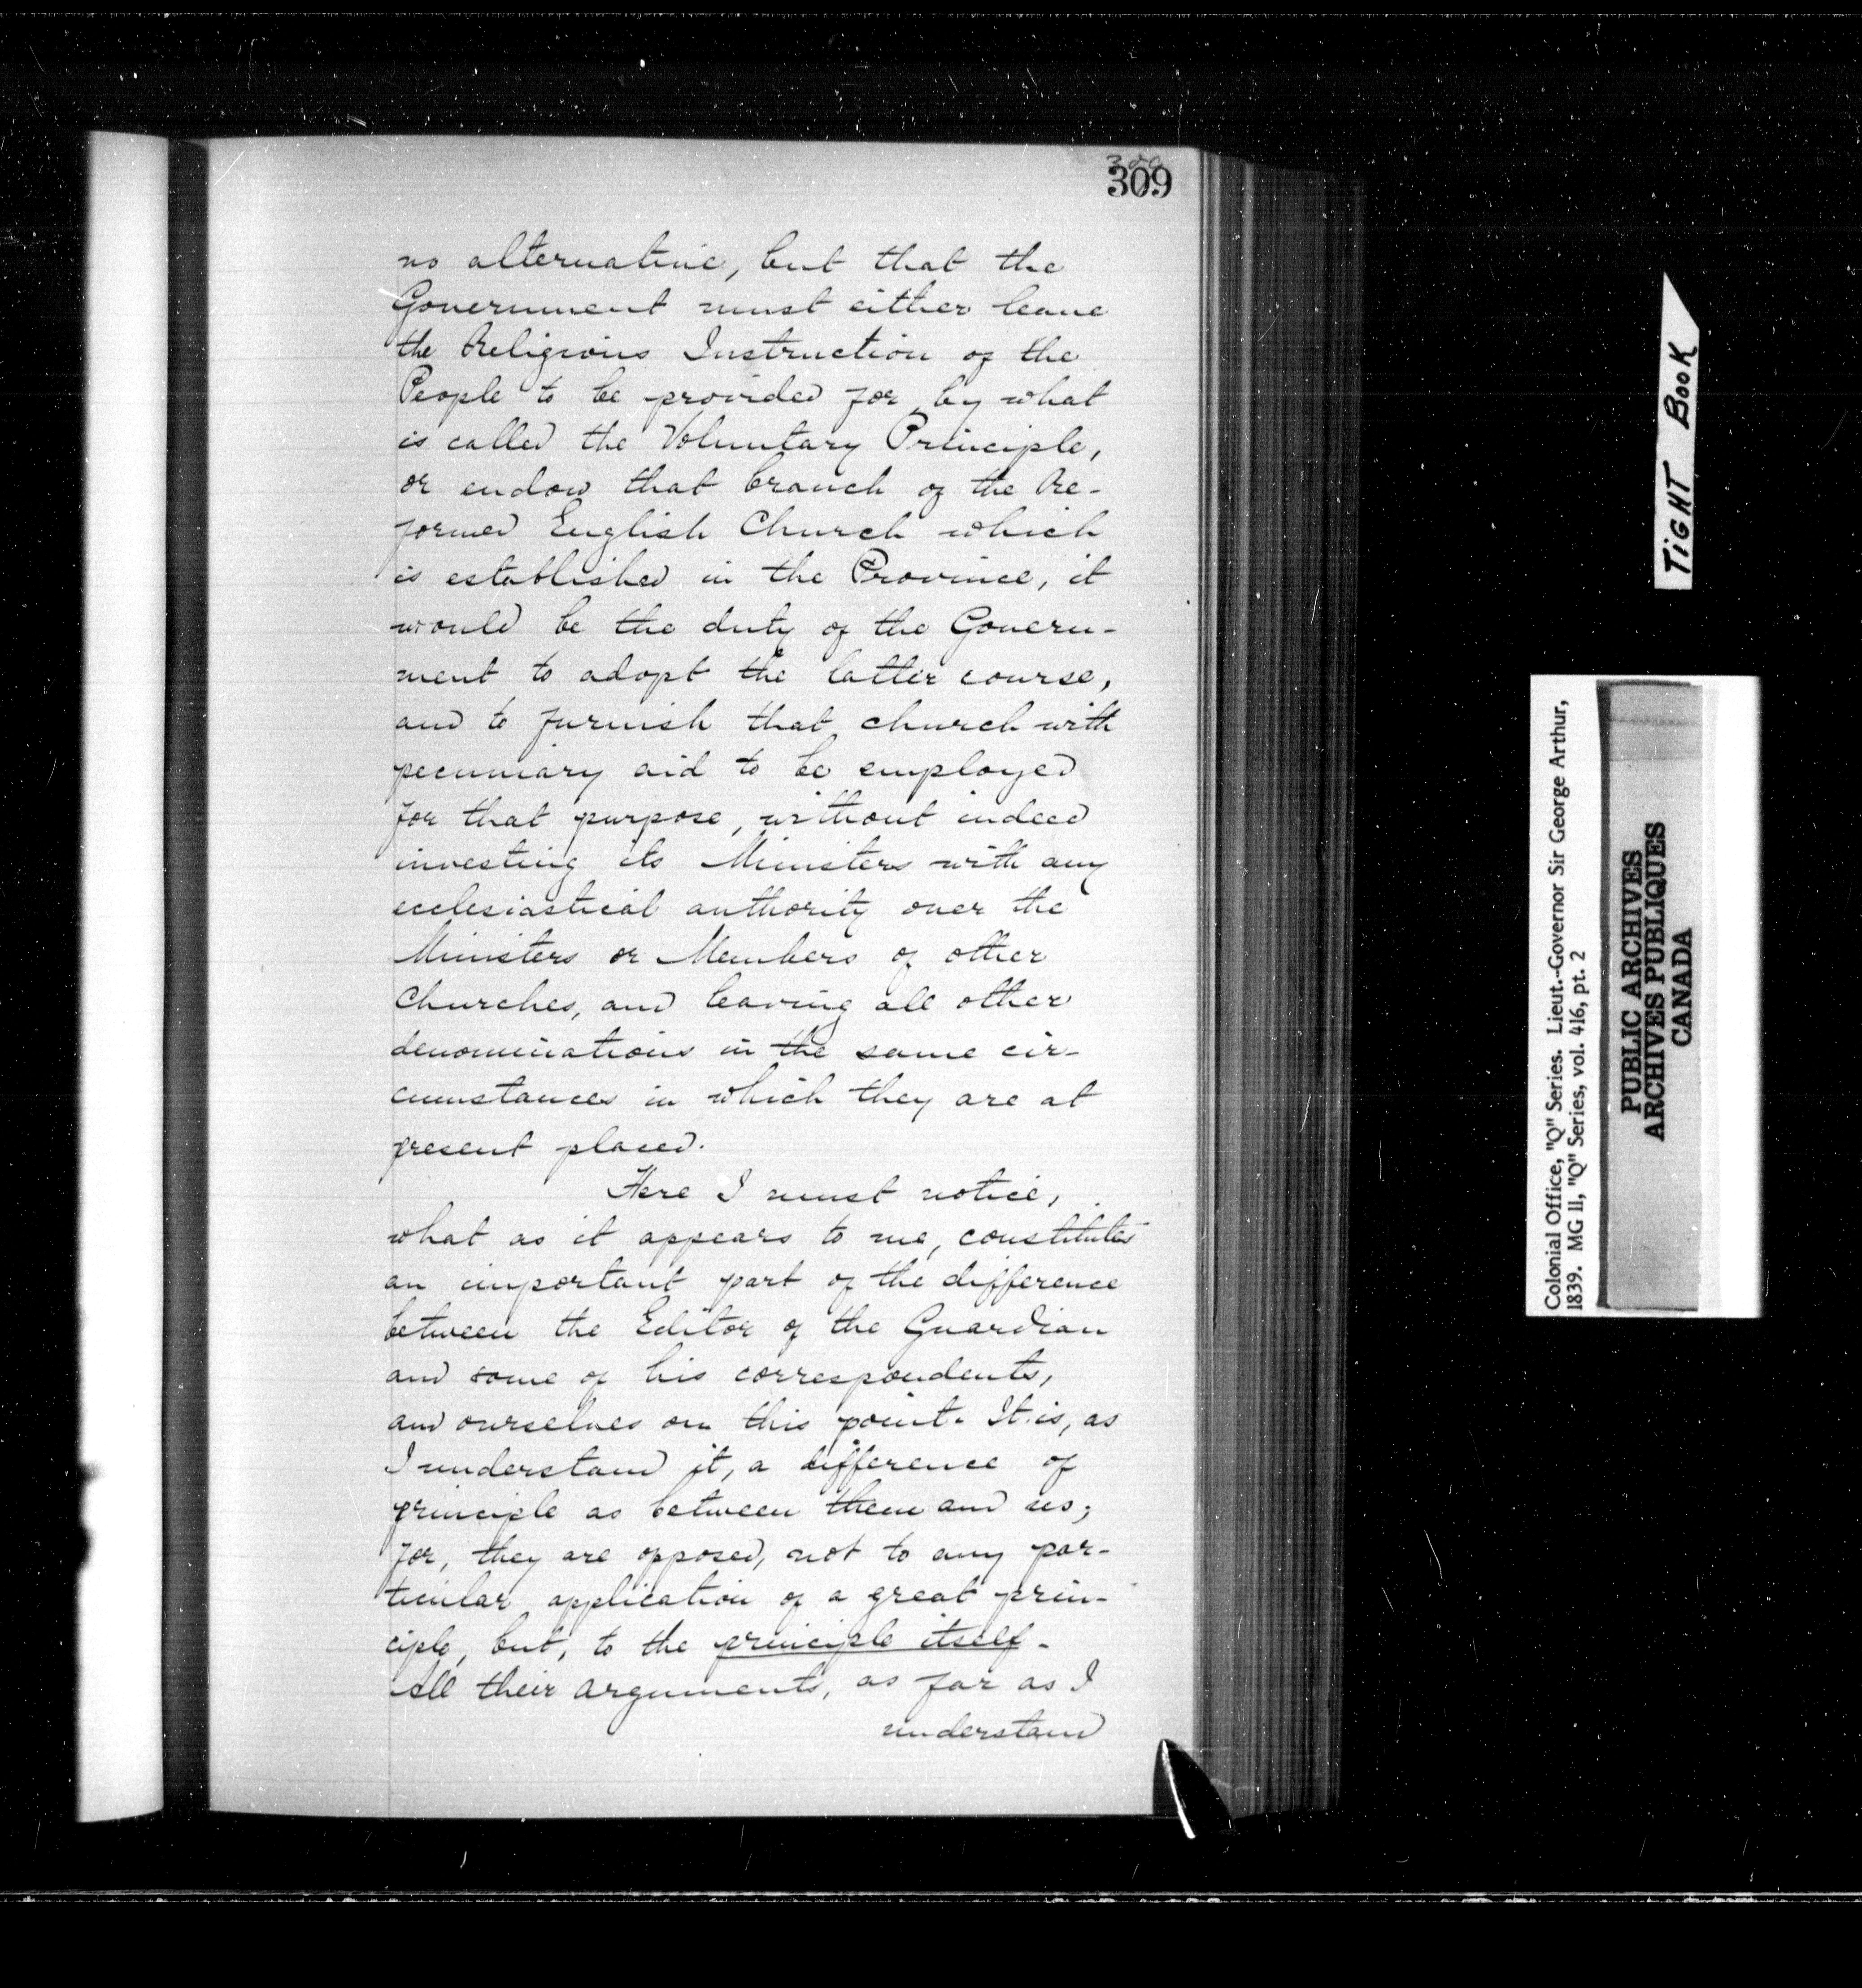 309
no alternative, but that the
Government must either leave
the Religious Instruction of the
People to be provided for, by what
is called the Voluntary Principle,
or endow that branch of the Re-
formed English Church which
is established in the Province, it
would be the duty of the Govern-
ment to adopt the latter course,
and to furnish that church with
pecuniary aid to be employed
for that purpose, without indeed
investing its Ministers with any
ecclesiastical authority over the
Ministers or Members of other
Churches, and leaving all other
denominations in the same cir-
cumstances in which they are at
present placed.
Here I must notice,
what as it appears to me, constitutes
an important part of the difference
between the Editor of the Guardian
and some of his correspondents,
and ourselves on this point. It is, as
I understand it, a difference of
principle as between them and us;
for, they are opposed, not to any par-
ticular application of a great prin-
ciple, but, to the principle itself.
All their arguments, as far as I
understand
TIGHT BOOK
Colonial Office, "Q" Series. Lieut.-Governor Sir George Arthur,
1839. MG 11, "Q" Series, vol. 416, pt. 2
PUBLIC ARCHIVES
ARCHIVES PUBLIQUES
CANADA